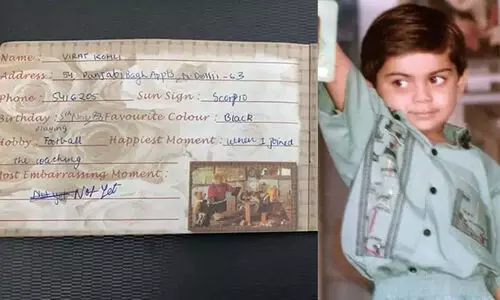 Name : VIRAT KOHLI
Address : Panjabi Bagh N-Delhi-63
Phone : 5416205 Sun Sign : Scorpio
Birthday : 5th Nov 88 Favourite Colour : Black
playing
Hobby : Football Happiest Moment : When I joined
the coaching
Most Embarrassing Moment :
Not Yet